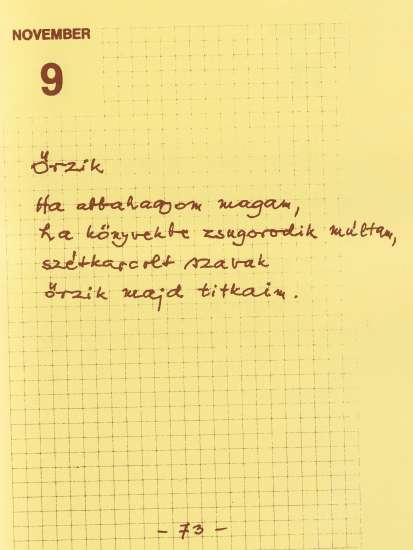 NOVEMBER
9
Őrzik
Ha abbahagyom magam,
ha könyvekbe zsugorodik múltam,
szétkarcolt szavak
őrzik majd titkaim.
- 73 -